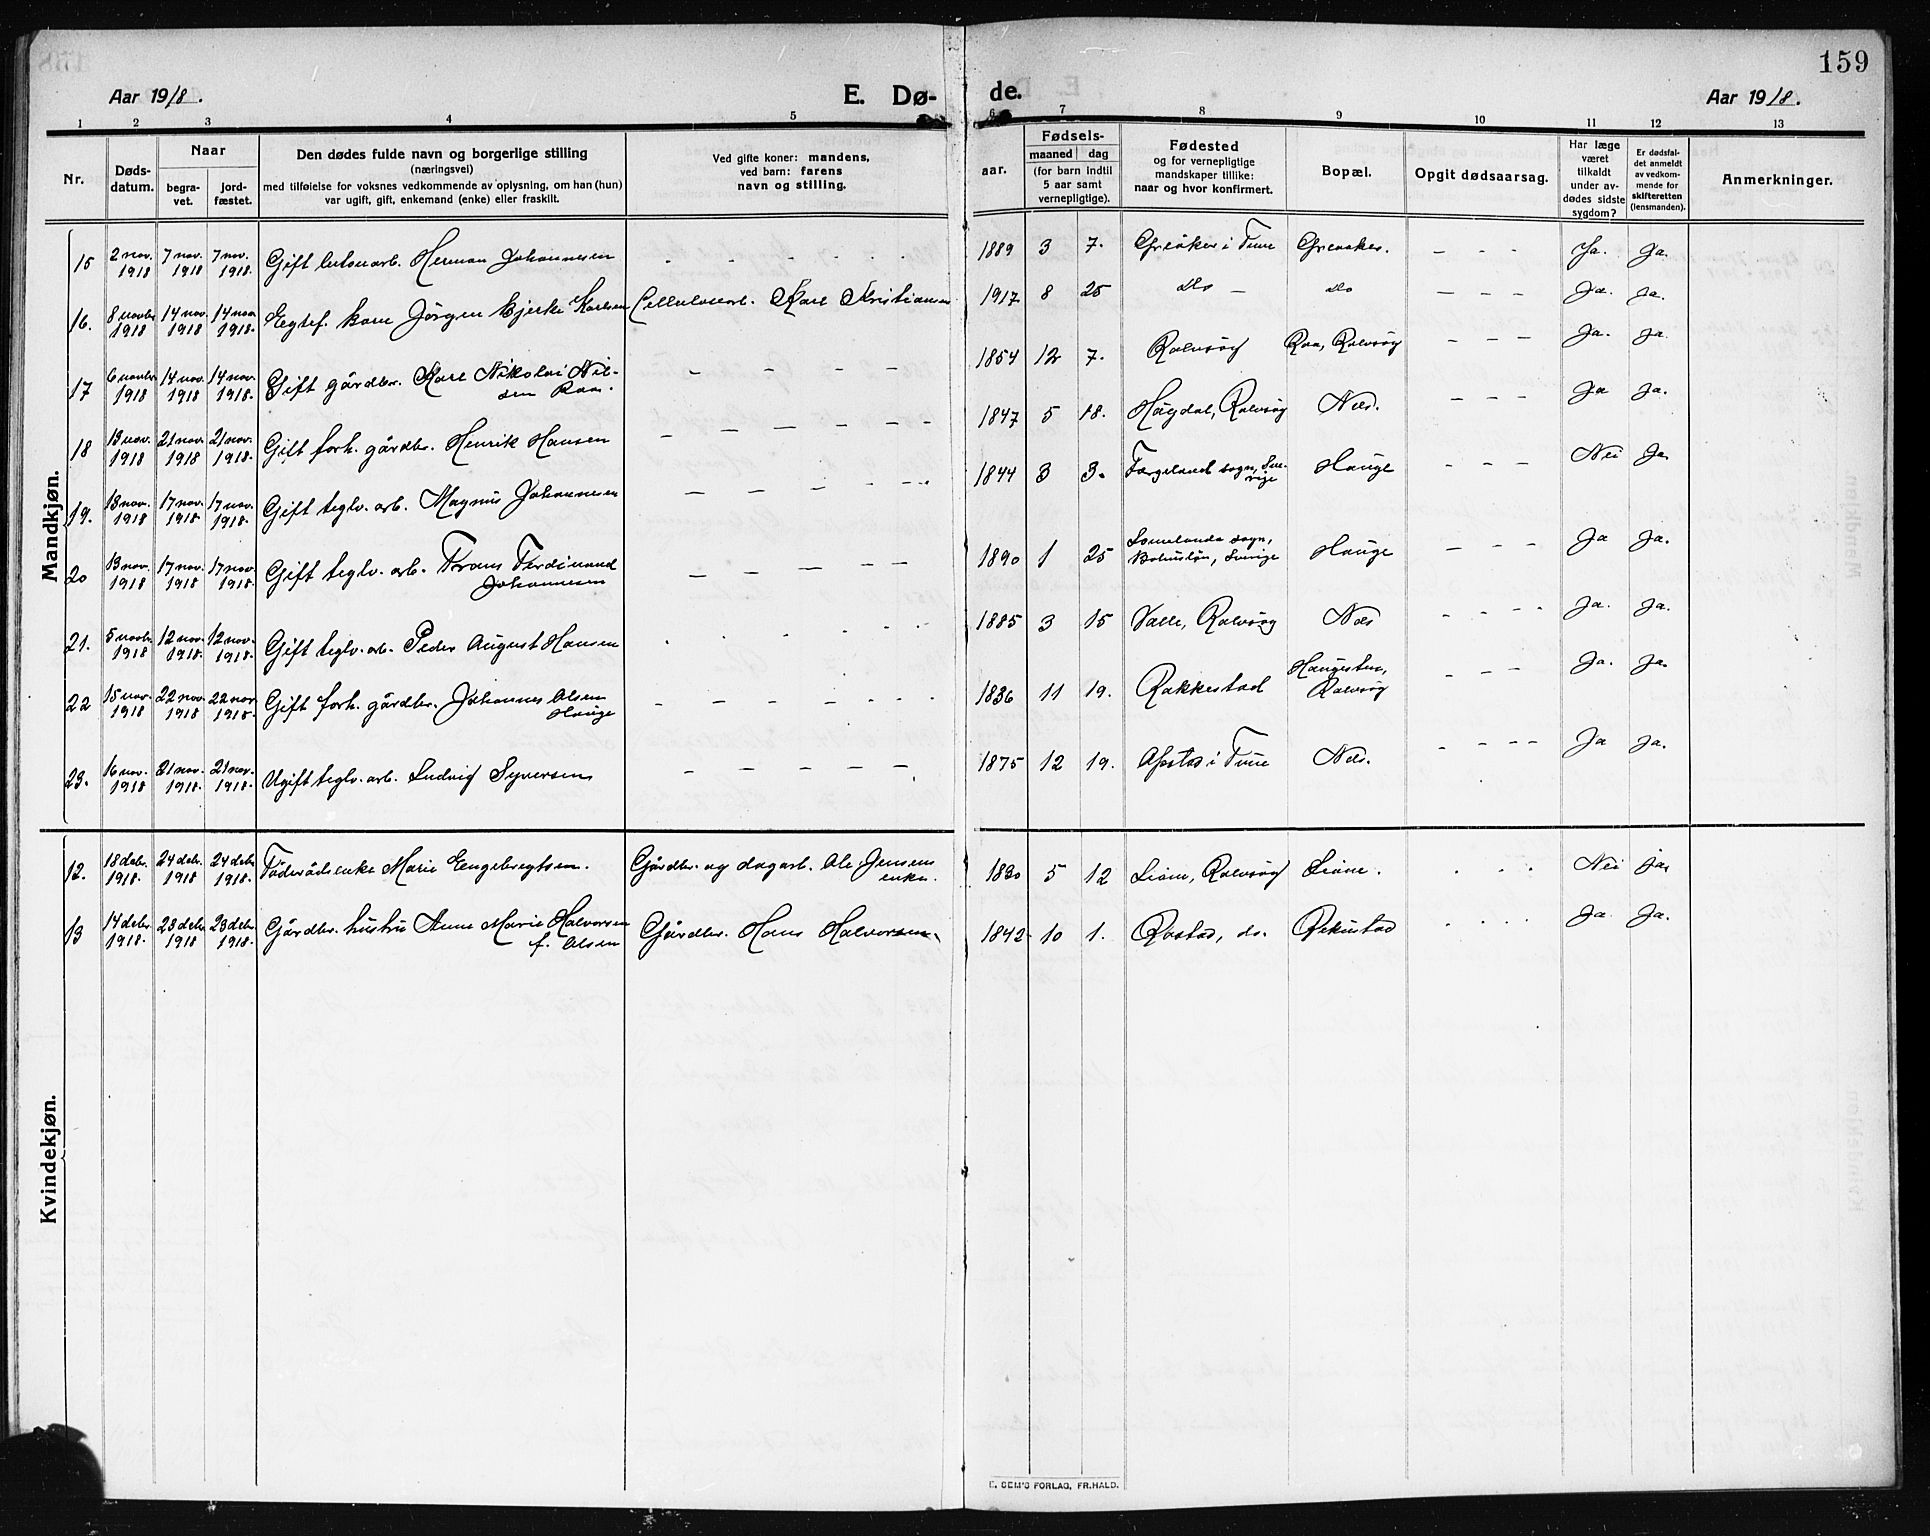 159
Aar 1918. E. Dø- de. Aar 1918.
1 2 3 4 5 6 7 8 9 10 11 12 13
Nr. Døds-datum. Naar begra-vet. jord-fæstet. Den dødes fulde navn og borgerlige stilling (næringsvei) med tilføielse for voksnes vedkommende av oplysning, om han (hun) var ugift, gift, enkemand (enke) eller fraskilt. Ved gifte koner: mandens, ved barn: farens navn og stilling. aar. Fødsels- maaned dag (for barn indtil 5 aar samt vernepligtige). Fødested og for vernepligtige mandskaper tillike: naar og hvor konfirmert. Bopæl. Opgit dødsaarsag. Har læge været tilkaldt under av-dødes sidste sygdom? Er dødsfal-det anmeldt av vedkom-mende for skifteretten (lensmanden). Anmerkninger.
Mandkjøn.
15 2 nov. 1918 7 nov. 1918 7 nov. 1918. Gift arb. Herman Johannesen - - - - - 1889 3 7. Greåker i Tune Greaaker. - - - Ja. Ja.
16. 8 novbr 1918 14 nov. 1918 14 nov 1918. Egtef. barn Jörgen Bjerke Karlsen Cellulosearb. Karl Kristiansen 1917 8 25 do - do - - - Ja. Ja.
17 6 novbr 1918 14 nov. 1918 14 nov. 1918. Gift gårdbr. Karl Nikolai Nil-
sen Raa. - - - - - 1854 12 7. Rolvsöy Raa, Rolvsöy - - - Ja. Ja.
18 13 nov. 1918 21 nov. 1918 21 nov. 1918. Gift forh. gårdbr. Henrik Hansen - - - - - 1847 5 18. Höydal, Rolvsöy Næs. - - - Ja Ja.
19. 13 nov. 1918 17 nov. 1918 17 nov. 1918. Gift teglv. arb. Magnus Johannesen - - - - - 1844 3 3. Færgeland sogn, Sve-
rige Hauge - - - Nei Ja
20 13 nov. 1918 17 nov. 1918 17 nov. 1918. Gift teglv. arb. Frans Ferdinand
Johannesen - - - - - 1890 1 25 sogn,
Bohuslän, Sverige Hauge - - - Ja Ja.
21. 5 novbr. 1918 12 nov. 1918. 12 nov. 1918. Gift teglv. arb. Peder August Hansen - - - - - 1885 3 15 Valle, Rolvsöy Næs - - - Ja. Ja.
22 15 nov. 1918 22 nov. 1918 22 nov 1918. Gift forh. gårdbr. Johannes Olsen
Hauge - - - - - 1836 11 19. Rakkestad Haugesten,
Rolvsöy - - - Ja. Ja.
23. 16 nov. 1918 21 nov. 1918. 21 nov. 1918. Ugift teglv. arb. Ludvig Syversen - - - - - 1875 12 19. i Tune Næs. - - - Ja Ja.
Kvindekjøn.
12. 18 debr. 1918. 24 debr. 1918 24 debr 1918. Föderådsenke Marie Engebregtsen. Gårdbr. og dagarb. Ole Jensens
enke. 1830 5 12 Liane, Rolvsöy Liane. - - - Nei ja.
13 14 debr. 1918. 23 debr. 1918 23 debr. 1918. Gårdbr. hustru Anne Marie Halvorsen
f. Olsen Gårdbr. Hans Halvorsen. 1842 10 1. Rostad, do. Rekustad - - - Ja Ja.
E. SEM'S FORLAG, FR.HALD.